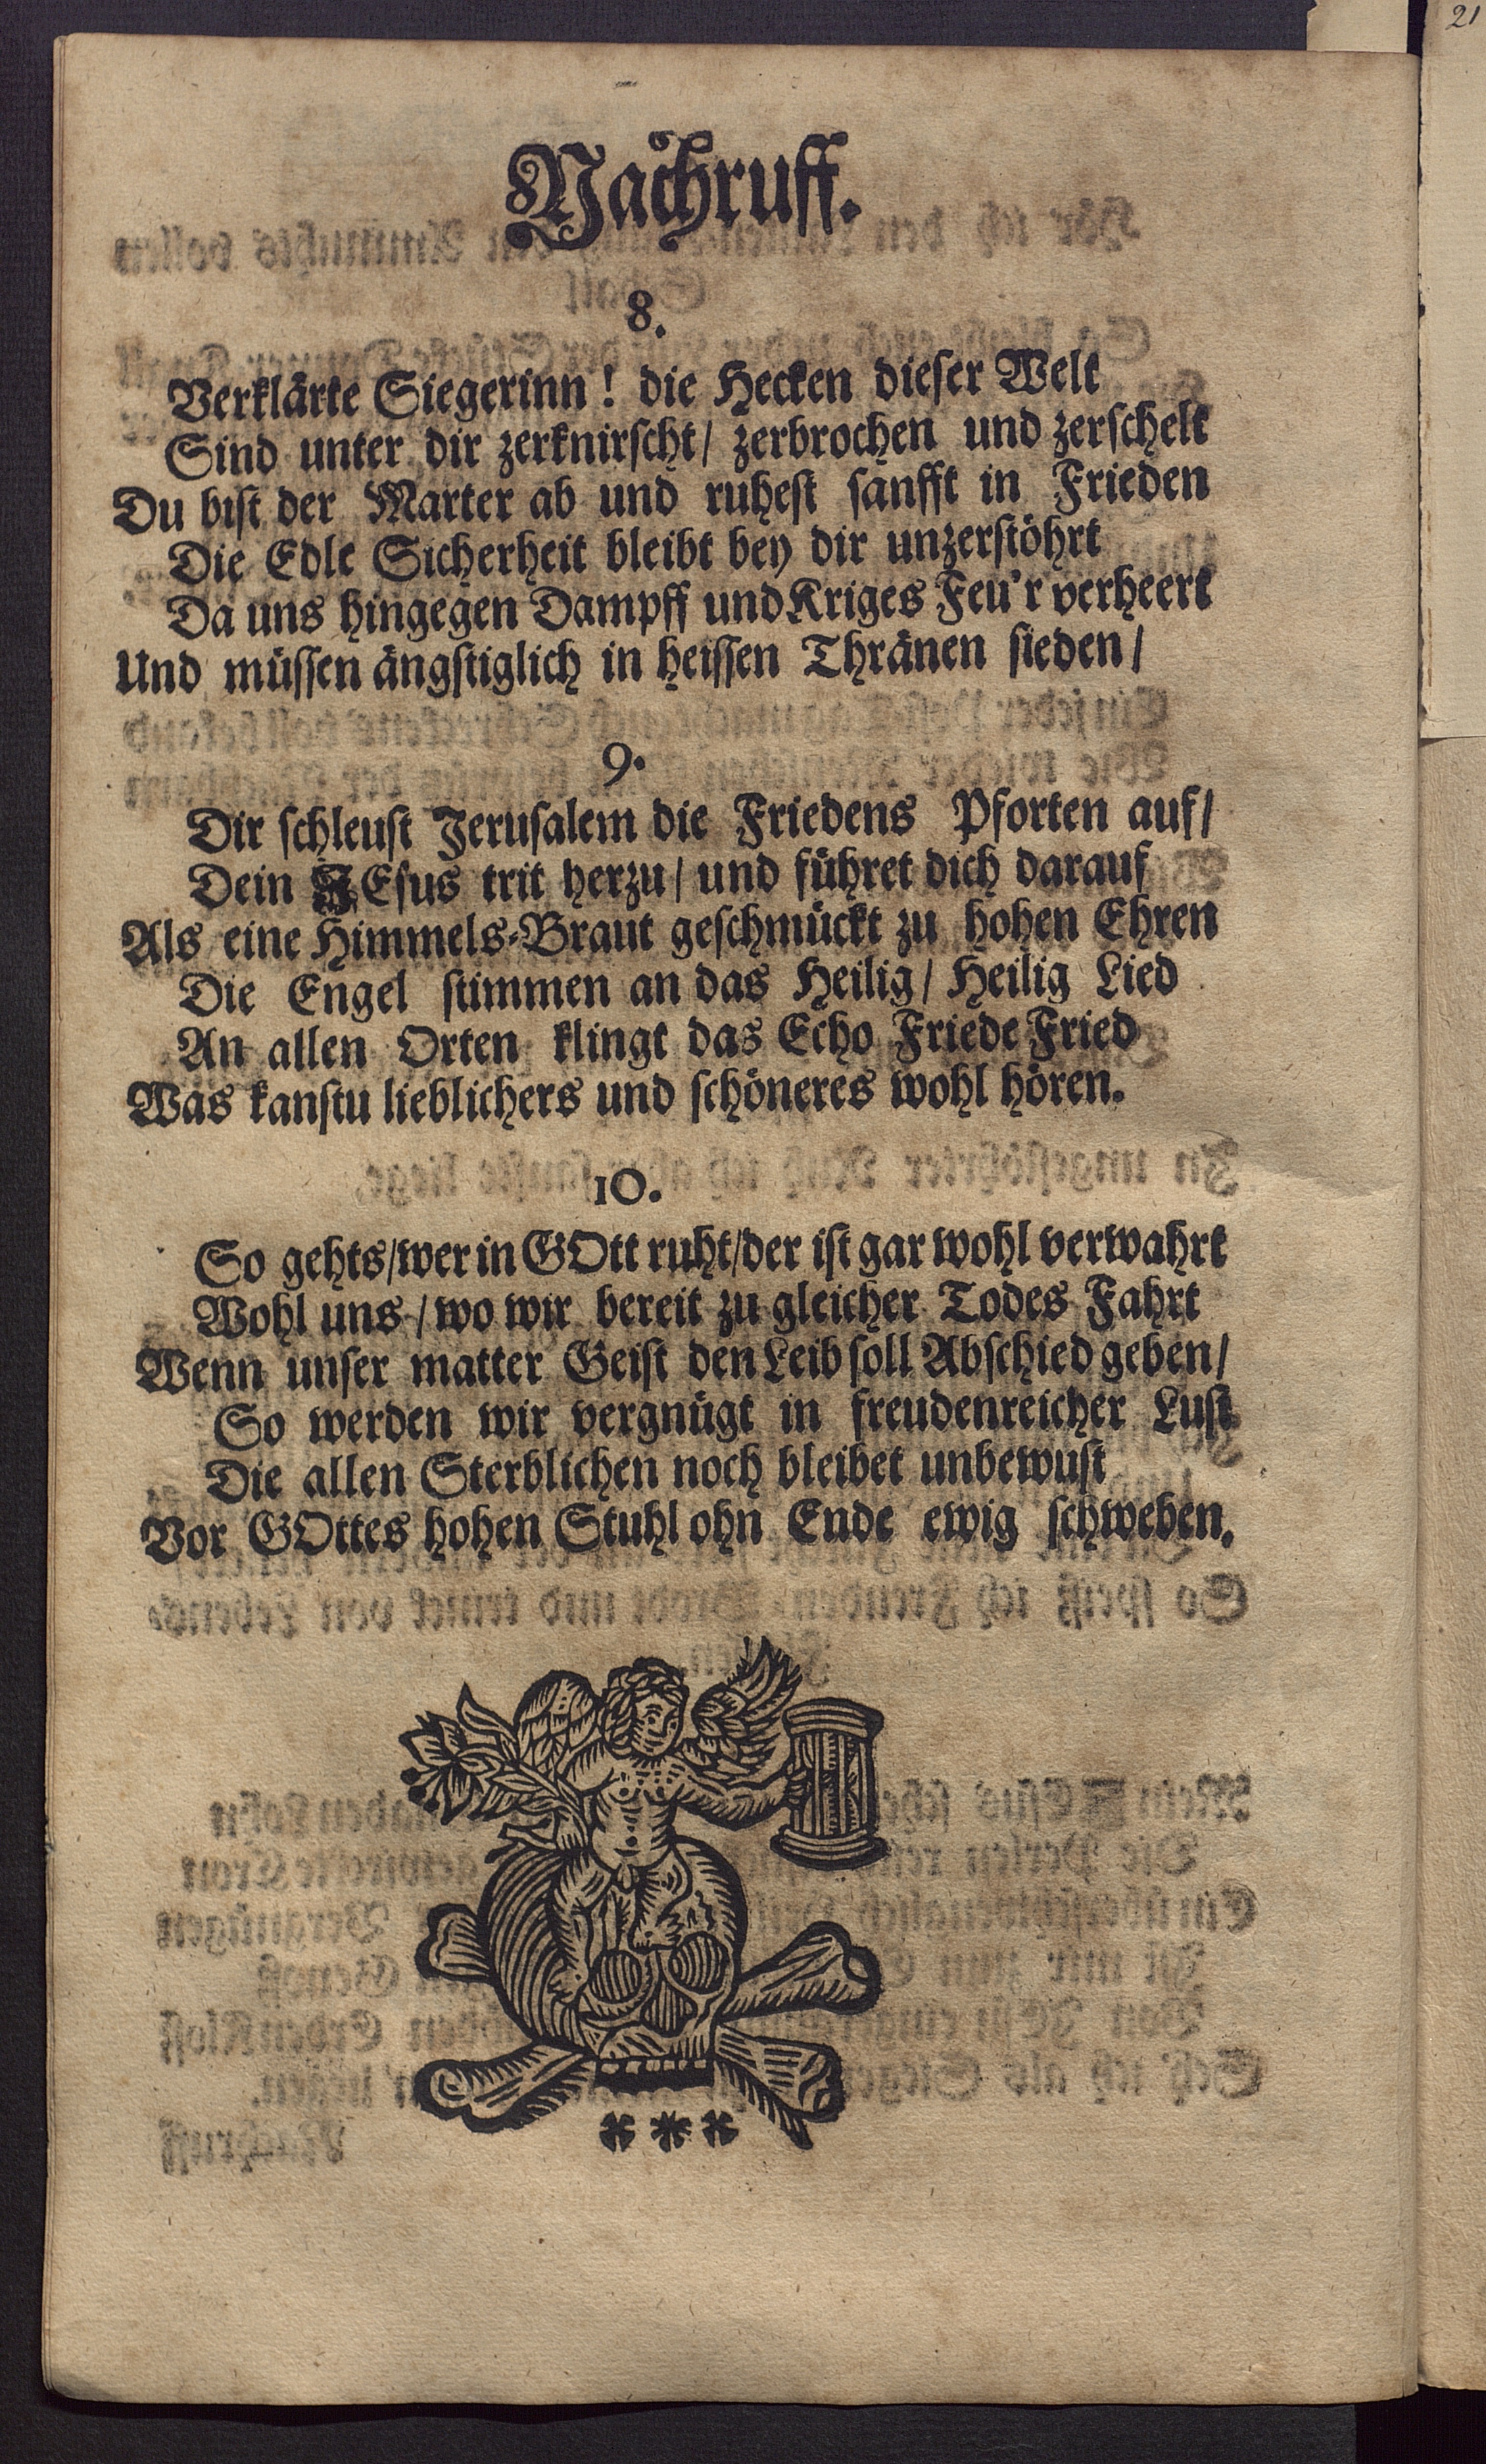 21
Nachruff.
8.
Verklärte Siegerinn! die Hecken dieser Welt
Sind unter dir zerknirscht/ zerbrochen und zerschelt
Du bist der Marter ab und ruhest sanfft in Frieden
Die Edle Sicherheit bleibt bey dir unzerstöhrt
Da uns hingegen Dampff und Kriges Feu'r verheert
Und müssen ängstiglich in heissen Thränen sieden/
9.
Dir schleust Jerusalem die Friedens Pforten auf/
Dein JEsus trit herzu/ und führet dich darauf
Als eine Himmels-Braut geschmückt zu hohen Ehren
Die Engel stimmen an das Heilig/ Heilig Lied
An allen Orten klingt das Echo Friede Fried
Was kanstu lieblichers und schöneres wohl hören.
10.
So gehts/wer in GOtt ruht/der ist gar wohl verwahrt
Wohl uns/ wo wir bereit zu gleicher Todes Fahrt
Wenn unser matter Geist den Leib soll Abschied geben/
So werden wir vergnügt in freudenreicher Lust
Die allen Sterblichen noch bleibet unbewust
Vor GOttes hohen Stuhl ohn Ende ewig schweben.
* * *